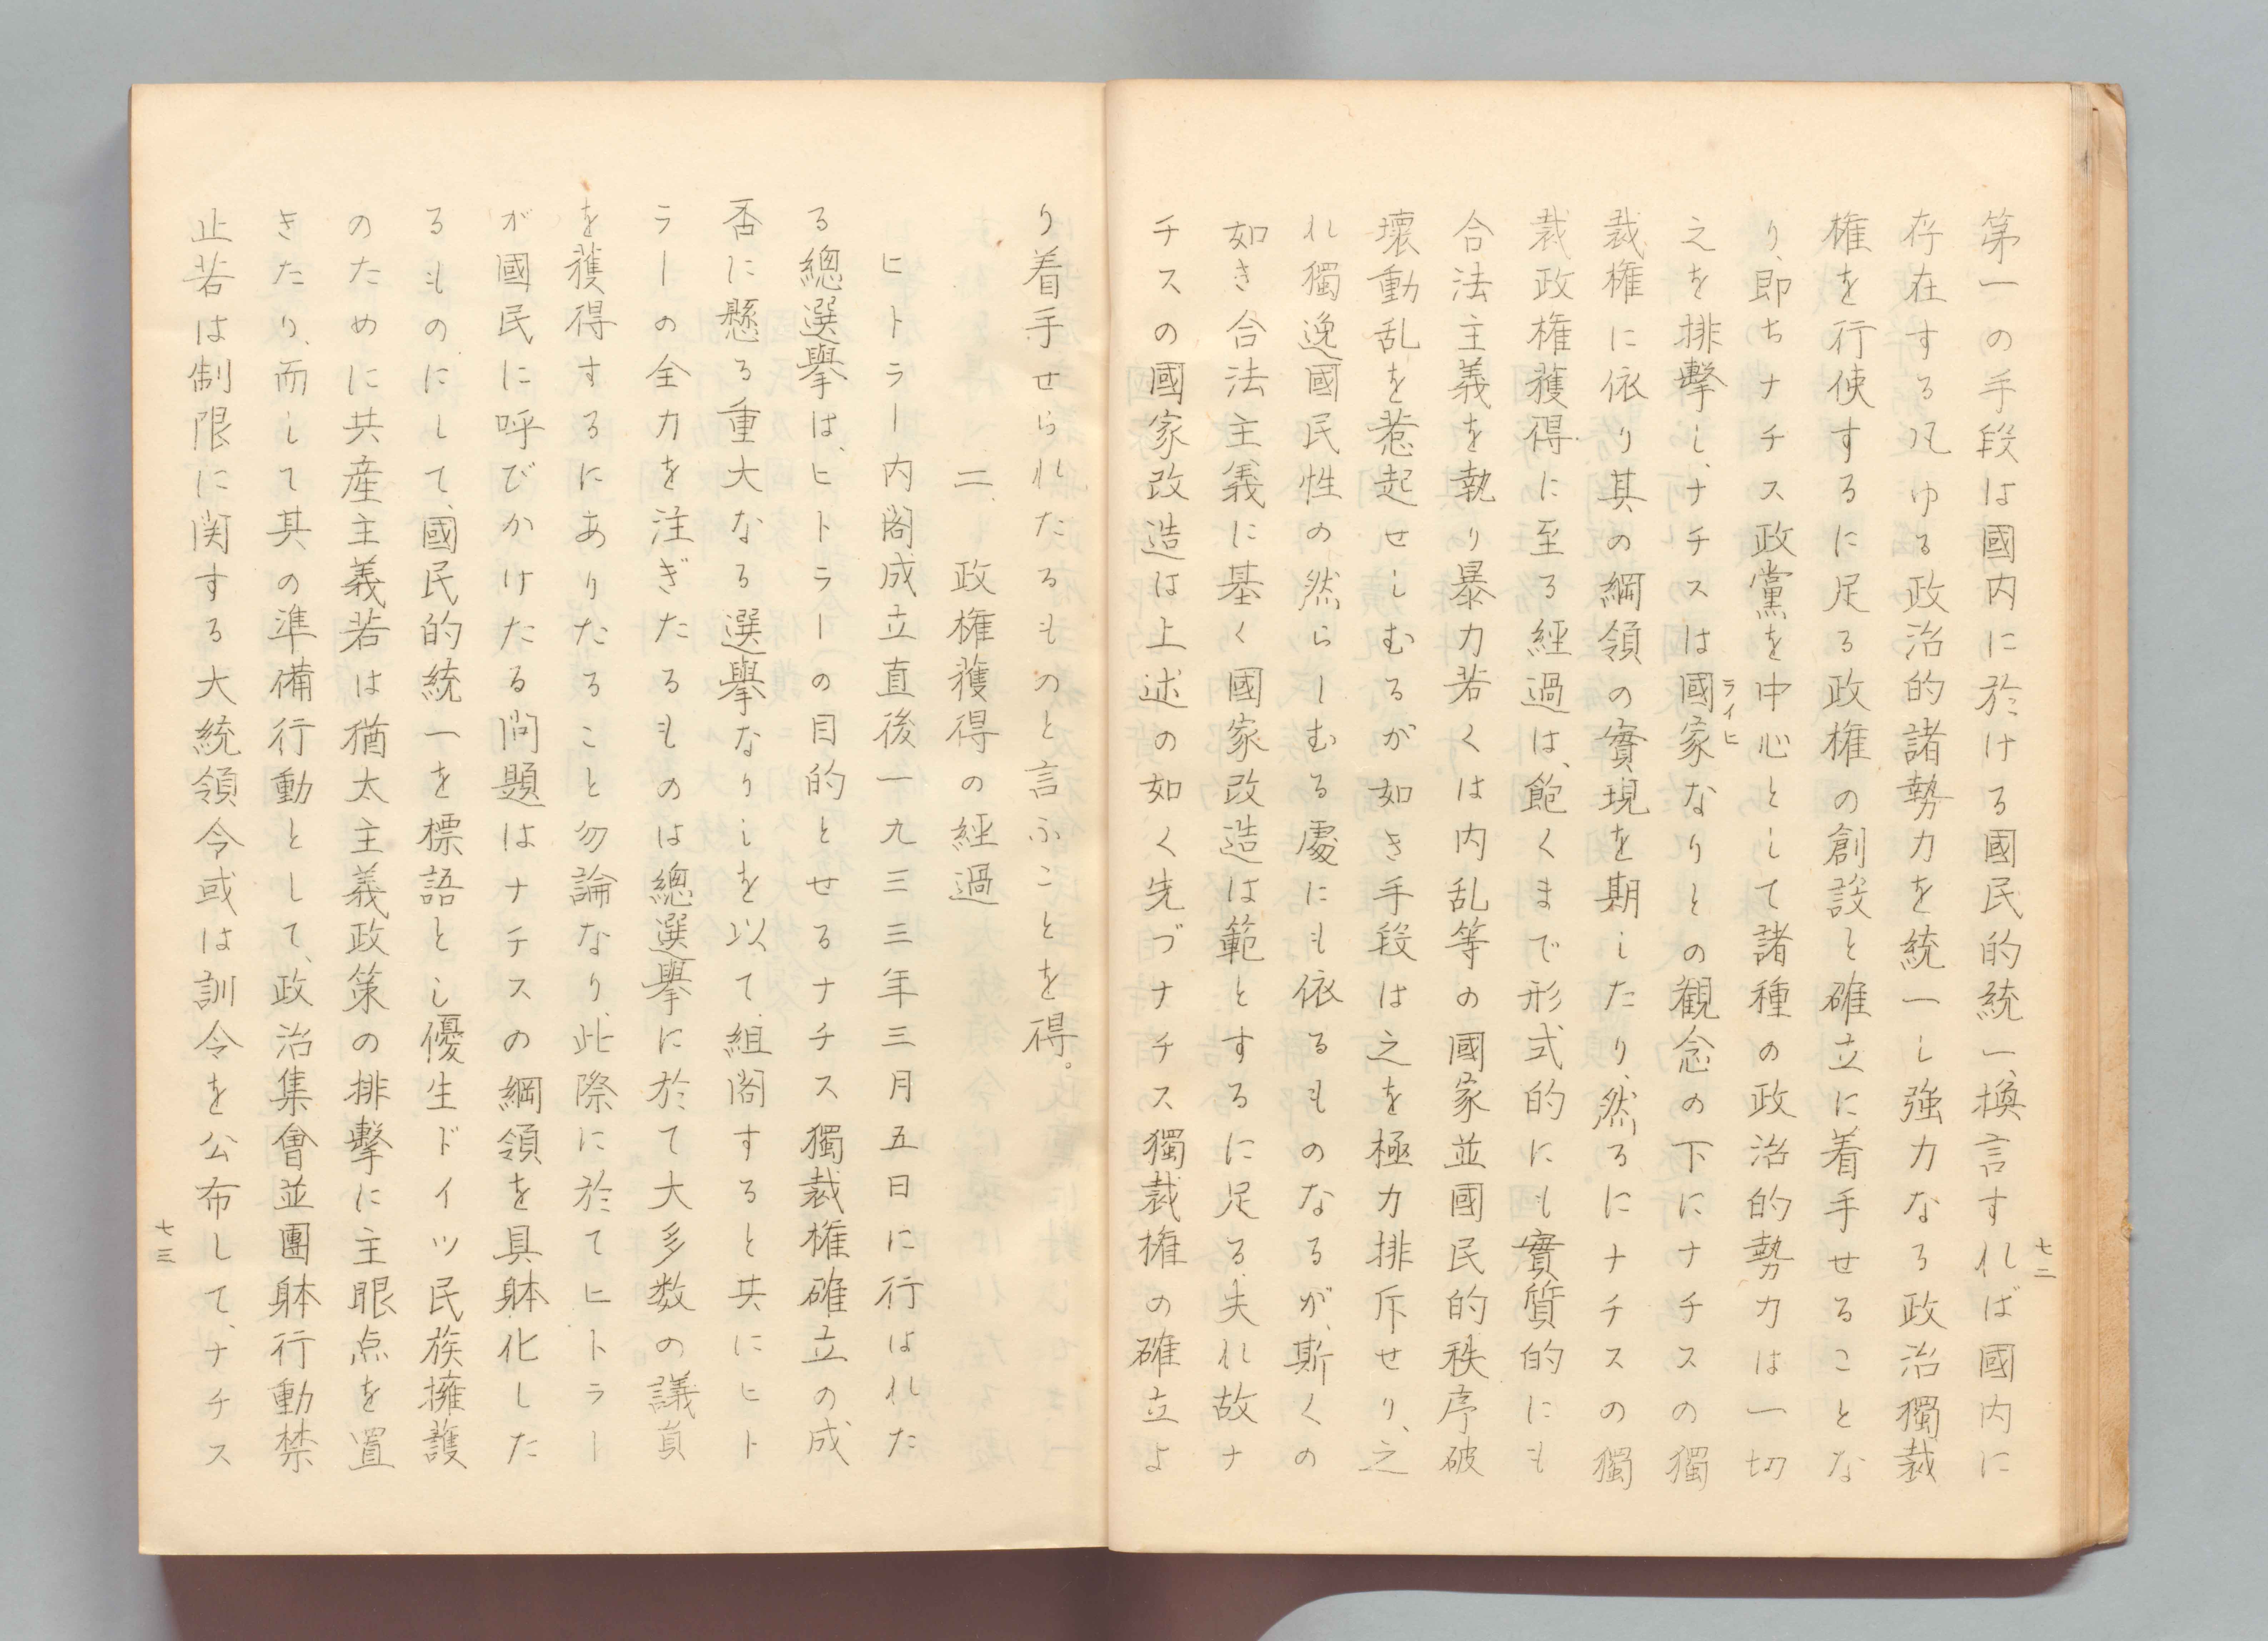 第一の手段は國内に於ける國民的統一、換言すれば國内に
存在する凡ゆる政治的諸勢力を統一し強力なる政治獨裁
権を行使するに足る政権の創設と確立に着手せることな
り、即ちナチス政黨を中心として諸種の政治的勢力は一切
之を排擊し、ナチスは國家なりとの観念の下にナチスの獨
ライヒ
裁権に依り其の綱領の實現を期したり、然るにナチスの獨
裁政権獲得に至る経過は、飽くまで形式的にも實質的にも
合法主義を執り暴力若くは内乱等の國家並國民的秩序破
壊動乱を惹起せしむるが如き手段は之を極力排斥せり、之
れ獨逸國民性の然らしむる處にも依るものなるが、斯くの
如き合法主義に基く國家改造は範とするに足る、夫れ故ナ
チスの國家改造は上述の如く先づナチス獨裁権の確立よ
七二
り着手せられたるものと言ふことを得。
二、政権獲得の経過
ヒトラー内閣成立直後一九三三年三月五日に行はれた
る總選擧は、ヒトラーの目的とせるナチス獨裁権確立の成
否に懸る重大なる選擧なりしを以て、組閣すると共にヒト
ラーの全力を注ぎたるものは總選擧に於て大多数の議員
を獲得するにありたること勿論なり、此際に於てヒトラー
が國民に呼びかけたる問題はナチスの綱領を具躰化した
るものにして、國民的統一を標語とし、優生ドイツ民族擁護
のために共産主義若は猶太主義政策の排擊に主眼点を置
きたり、而して其の準備行動として、政治集會並團躰行動禁
止若は制限に関する大統領令或は訓令を公布して、ナチス
七三